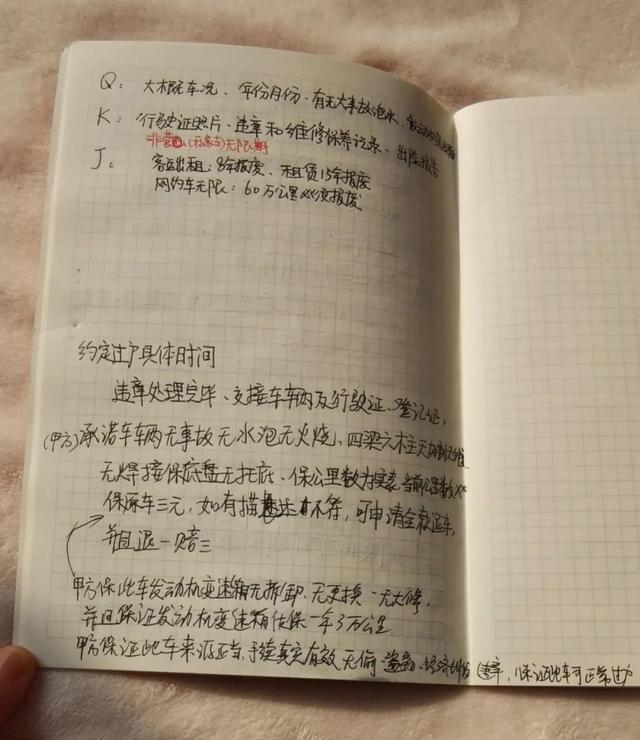 Q：大概车况、年份月份、有无大事故泡水、
K：行驶证照片、违章和维修保养记录、出险报告
非营运(私家车)无限期
J：客运出租：8年报废、租赁15年报废
网约车无限：60万公里必须报废
约定过户具体时间
违章处理完毕、交接车辆及行驶证、登记证，
(甲方)承诺车辆无事故无水泡无火烧，四梁六柱
无焊接保底盘无托底、保公里数为真实、当前公里数
保原车三元，如有描述不符，可申请全款退车，
并且退一赔三
甲方保此车发动机变速箱无拆卸、无更换、无大修，
并且保证发动机变速箱质保一年3万公里
甲方保证此车来源正当，手续真实有效，无偷盗、经济纠纷违章，保证此车可正常过户